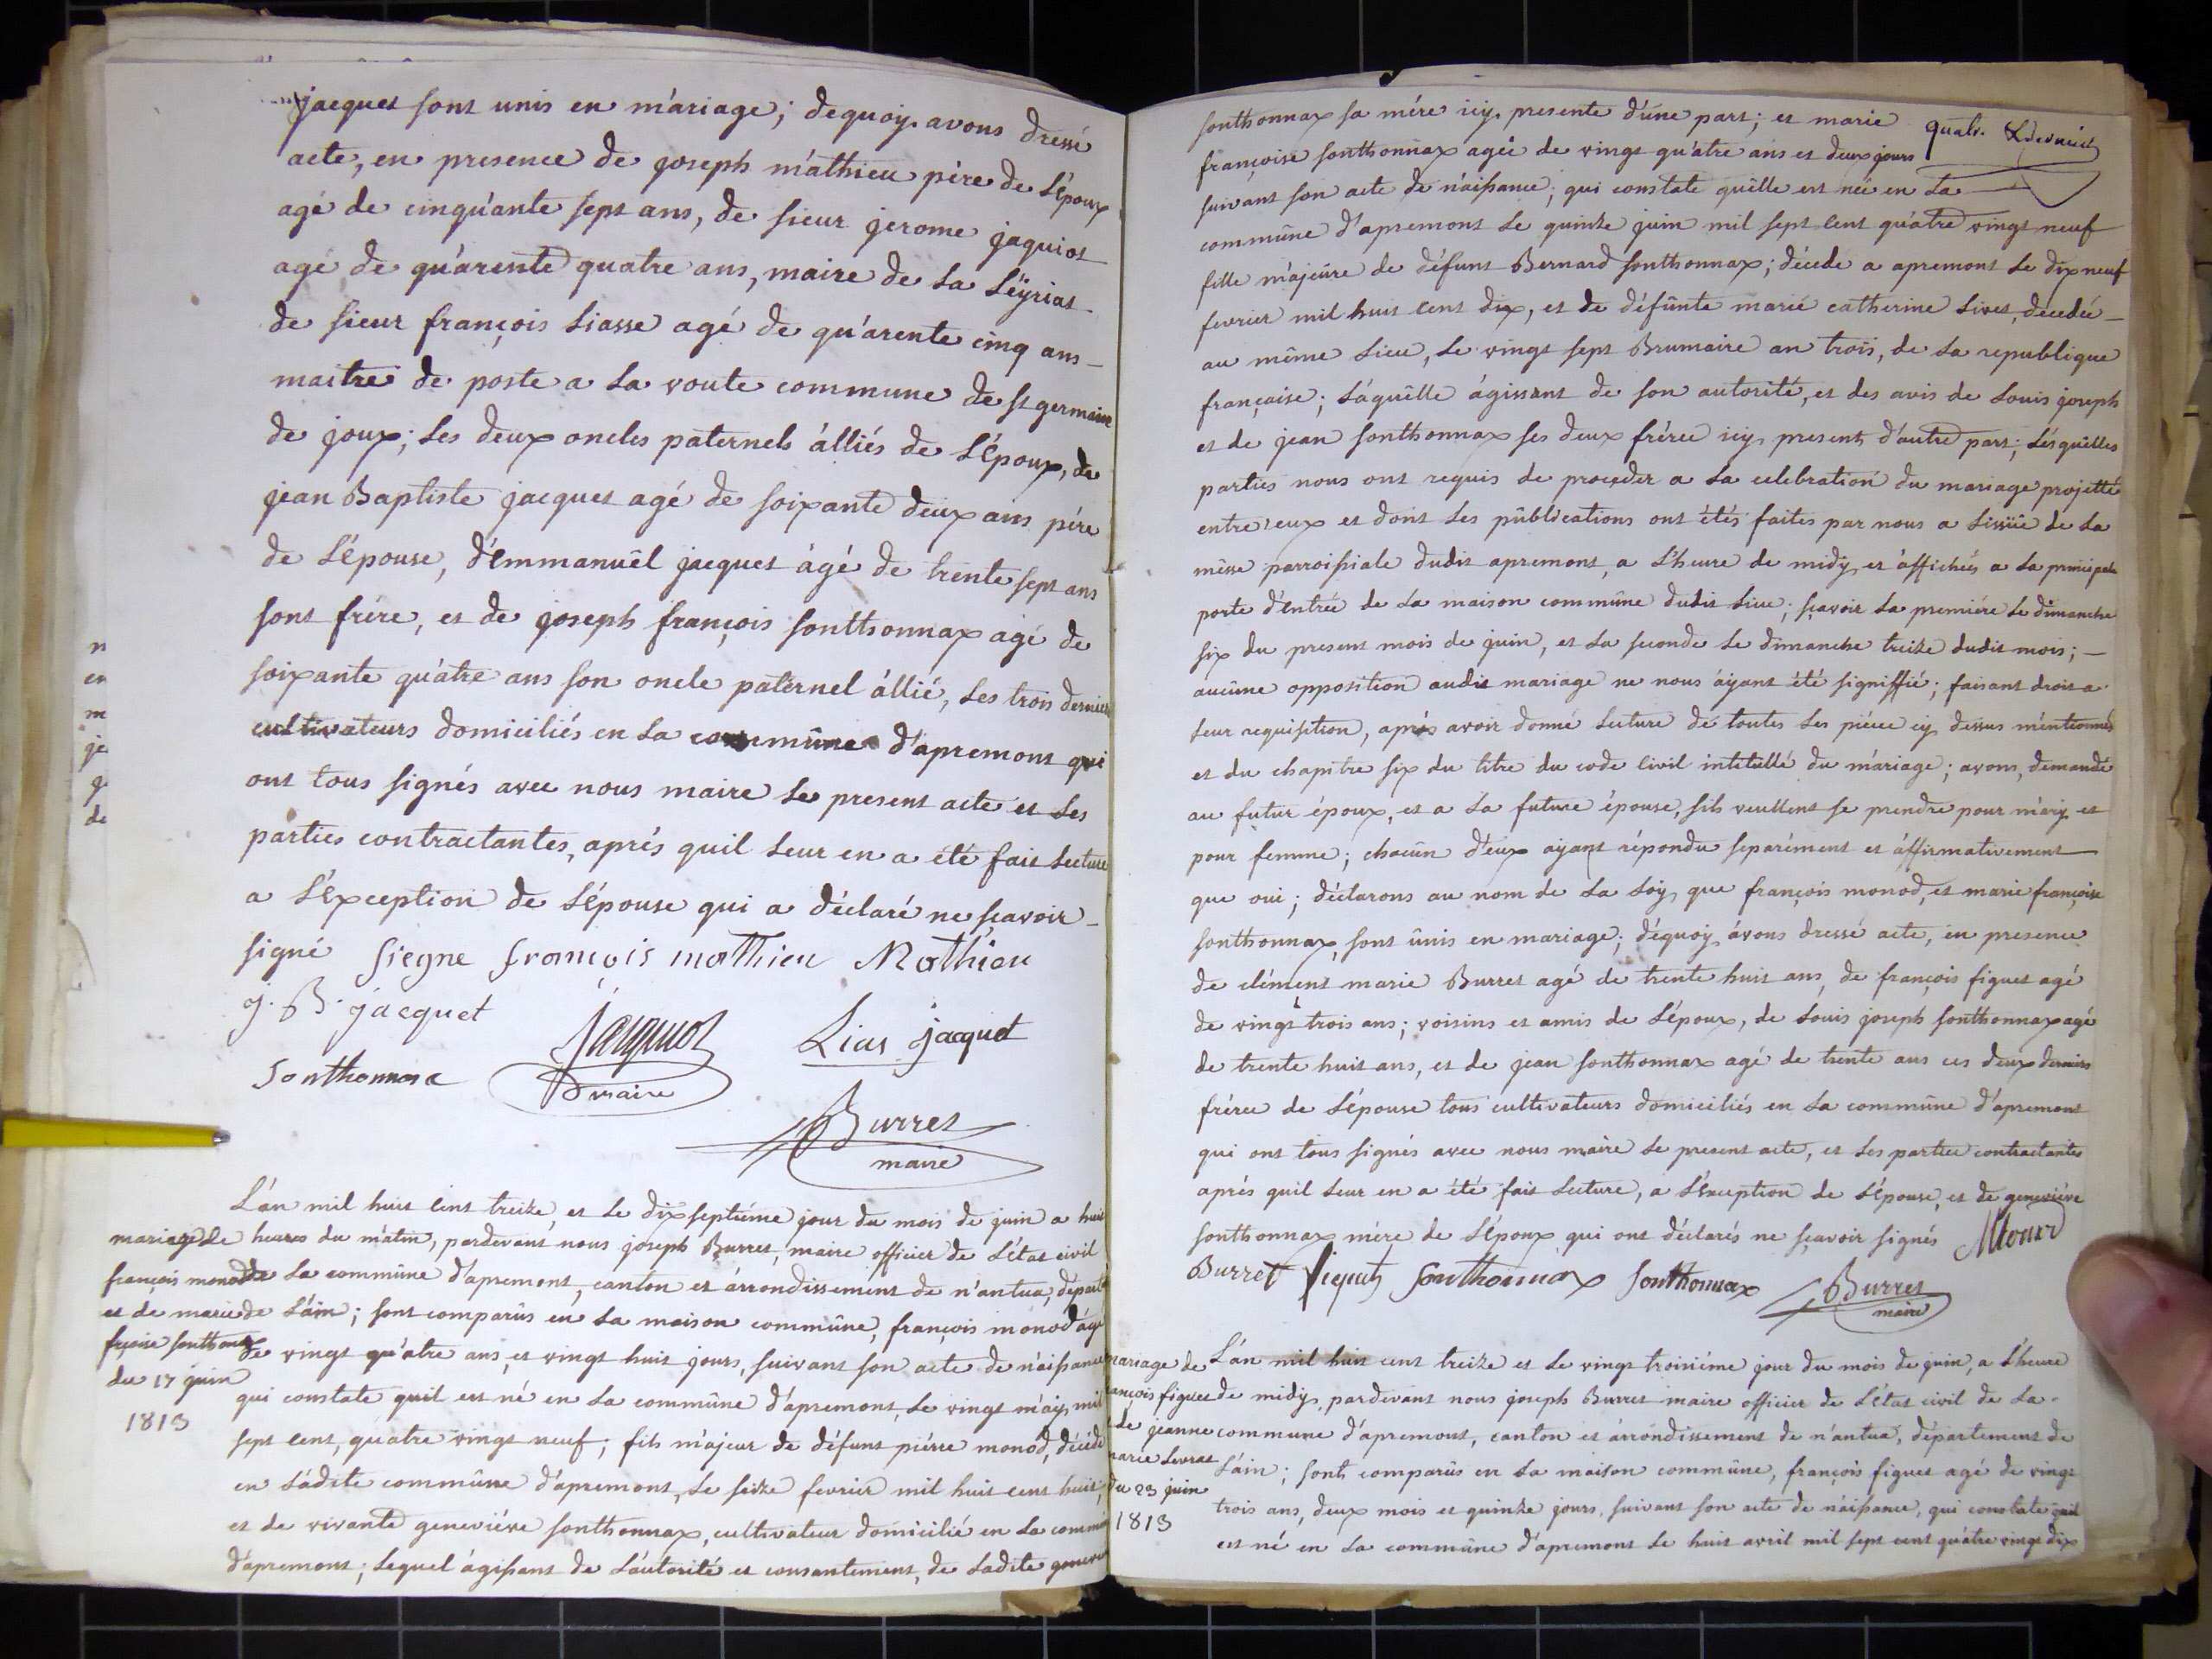 jacquet sont unis en mariage; dequoy avons dressé
acte, en presence de joseph mathieu père de L'époux,
agé de cinquante sept ans, de sieur jerome jaquiot
agé de quarente quatre ans, maire de La Léyriat
de sieur françois Liasse agé de quarente cinq ans
maitre de poste a La voute commune de st germain
de joux; Les deux oncles paternels alliés de L'époux, de
jean Baptiste jacquet agé de soixante deux ans père
de L'épouse, d'emmanuël jacquet âgé de trente sept ans
sont frére, et de joseph françois sonthonnax agé de
soixante quatre ans son oncle paternel allié, Les trois derniers
cultivateurs domiciliés en La commune d'apremont qui
ont tous signés avec nous maire Le present acte et Les
parties contractantes, aprés quil Leur en a été fait Lecture
a L'exception de L'épouse qui a déclaré ne scavoir
signé siegne françois mathieu Mathieu
j. B. jacquet
jaquiot
Lias jacquet
Sonthonnax
maire
Burret
maire
L'an mil huit cent treize, et Le dix septiéme jour du mois de juin a huit
heures du matin, pardevant nous joseph Burret, maire officier de L'état civil
de La commûne d'apremont, canton et arrondissement de nantua, départ
de L'ain; sont comparûs en La maison commûne, françois monod âgé
de vingt quatre ans et vingt huit jours, suivant son acte de naissance
qui constate quil est né en La commûne d'apremont, Le vingt may mil
sept cent, quatre vingt neuf; fils majeur de défunt piérre monod, décédé
en Ladite commûne d'apremont, Le seize fevrier mil huit cent huit;
et de vivante geneviéve sonthonnax, cultivateur domicilié en La commûne
d'apremont; Lequel agissant de L'autorité et consantement, de Ladite geneviéve
mariage de
françois monod
et de marie
fçoise sonthonnax
du 17 juin
1813
sonthonnax sa mére icy presente d'une part; et marie
françoise sonthonnax agée de vingt quatre ans et deux jours
suivant son acte de naissance; qui constate quelle est née en La
commûne d'apremont Le quinze juin mil sept cent quatre vingt neuf
fille majeure de défunt Bernard sonthonnax; décédé a apremont Le dix neuf
fevrier mil huit cent dix, et de défunte marie catherine Livet, décédée
au même Lieu, Le vingt sept Brumaire an trois, de La republique
française; Laquelle agissant de son autorité, et des avis de Louis joseph
et de jean sonthonnax ses deux fréres icy present d'autre part; Lesquelles
parties nous ont requis de proceder a La celebration du mariage projetté
entre eux et dont Les publications ont étés faites par nous a L'issüe de La
mésse parroissiale dudit apremont, a L'heure de midy et affichées a La principale
porte d'entrée de La maison commûne dudit Lieu; sçavoir La premiére Le dimanche
six du present mois de juin, et La seconde Le dimanche treize dudit mois;
aucune opposition audit mariage ne nous ayant été signiffié; faisant droit a
Leur requisition, aprés avoir donné Lecture de toutes Les piéces cy dessus mentionnées
et du chapitre six du titre du code civil intitullé du mariage; avons, demandé
au futur époux, et a La future épouse, s'ils veullent se prendre pour mary et
pour femme; chacûn d'eux ayant répondu separément et affirmativement
que oui; déclarons au nom de La Loy, que françois monod, et marie françoise
sonthonnax, sont unis en mariage; dequoy avons dressé acte, en presence
de clément marie Burret agé de trente huit ans, de françois figuet agé
de vingt trois ans; voisins et amis de L'époux, de Louis joseph sonthonnax agé
de trente huit ans, et de jean sonthonnax agé de trente ans ces deux derniers
fréres de L'épouse tous cultivateurs domiciliés en La commûne d'apremont
qui ont tous signés avec nous maire Le present acte, et Les parties contractantes
aprés quil Leur en a été fait Lecture, a L'exception de L'épouse, et de geneviéve
sonthonnax mére de L'époux qui ont déclarés ne sçavoir signés
Burret figuet Sonthonnax Sonthonnax Burret
maire
L'an mil huit cent treize et Le vingt troisiéme jour du mois de juin, a L'heure
de midy, pardevant nous joseph Burret maire officier de L'état civil de La
commune d'apremont, canton et arrondissement de nantua, département de
L'ain; sont comparûs en La maison commûne, françois figuet agé de vingt
trois ans, deux mois et quinze jours, suivant son acte de naissance, qui constate quil
est né en La commûne d'apremont Le huit avril mil sept cent quatre vingt dix
mariage de
ançois figuet
de jeanne
marie Levrat
du 23 juin
1813